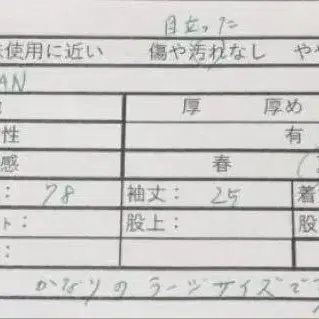 目立った
使用に近い 傷や汚れなし やや
AN
厚 厚め
性 有
感 春
: 78 袖丈: 25 着
ト: 股上: 股
:
かなりのラージサイズで